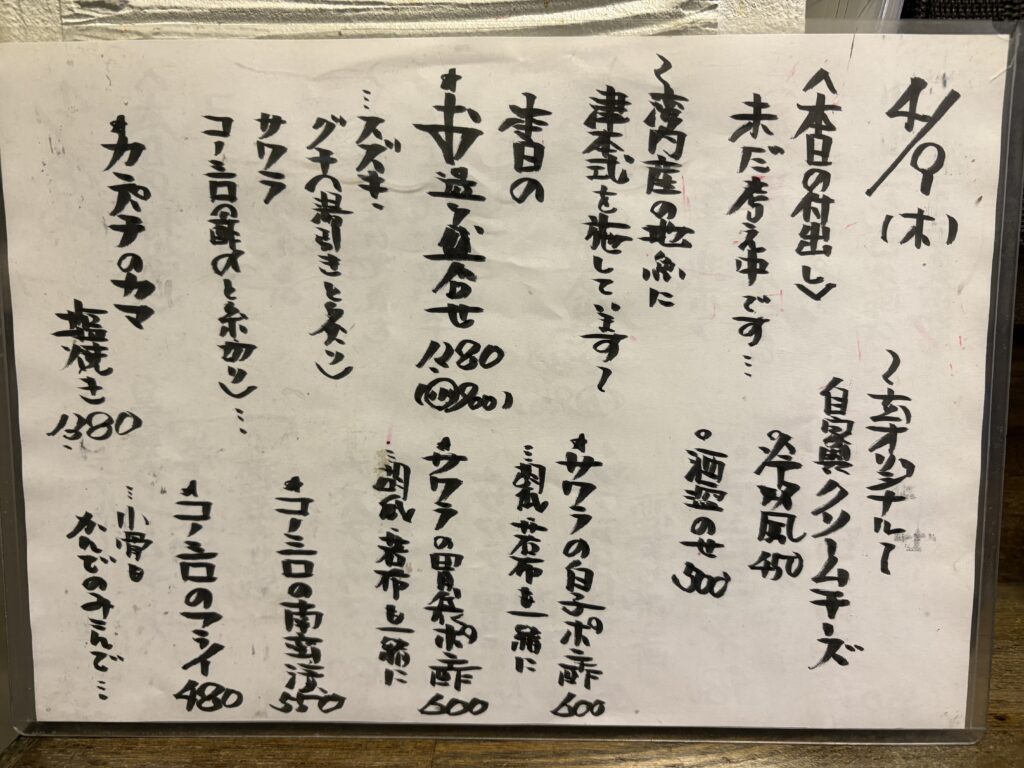 4/9(木)
〈本日の付出し〉
未だ考え中です…
〜湾内産の地魚に
津本式を施しています〜
本日の
★お造り盛合せ 1280
900
…スズキ、
グチ(湯引きと炙り)
サワラ
コノシロ(酢〆と糸切り)…
★カンパチのカマ
塩焼き 1380
〜玄オリジナル〜
自家製クリームチーズ
冷奴風 450
○酒盗のせ 500
★サワラの白子ポン酢 600
…胡瓜、若布も一緒に
★サワラの胃袋ポン酢 600
…胡瓜、若布も一緒に
★コノシロの南蛮漬 550
★コノシロのフライ 480
…小骨も
かんでのみこんで…